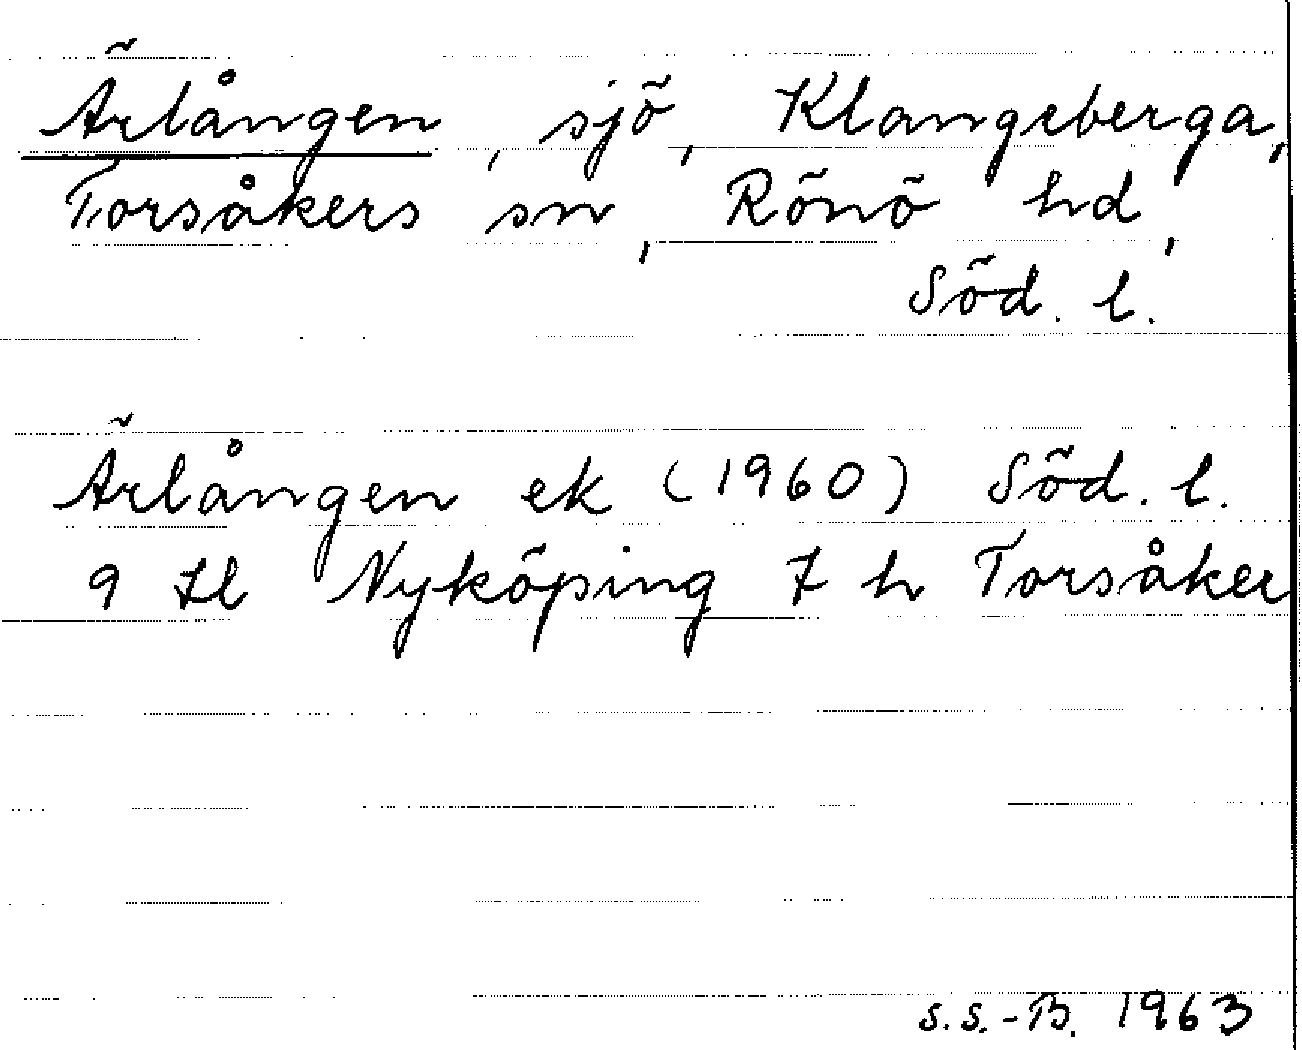 Ärlången, sjö, Klangeberga,
Torsåkers sn, Rönö hd,
Söd. l.
Ärlången ek (1960) Söd. l.
9 H l Nyköping 7 h Torsåker
S.S.-B. 1963